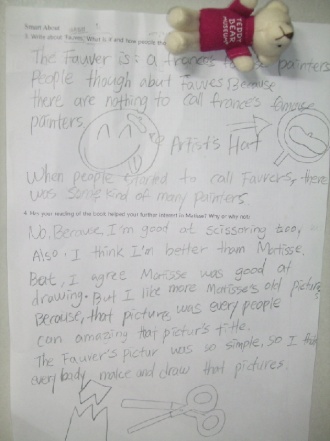 3. Write about Fauves. What is it and how people tho
The Fauver is: a france's painters
People though abut Fauves Because
there are nothing to call france's famouse
painters.
Artist's Hat
When people started to call Fauvers, there
was some kind of many painters.
4. Has your reading of the book helped your further interest in Matisse? Why or why not?
No. Because I'm good at scissoring too,
Also, I think I'm better than Matisse.
But, I agree Matisse was good at
drawing. But I like more Matisse's old picture
Because, that pictures was every people
can amazing that pictur's title.
The Fauver's pictur was so simple, so I think
everybady make and draw that pictures.
TEDDY
BEAR
MUSEUM